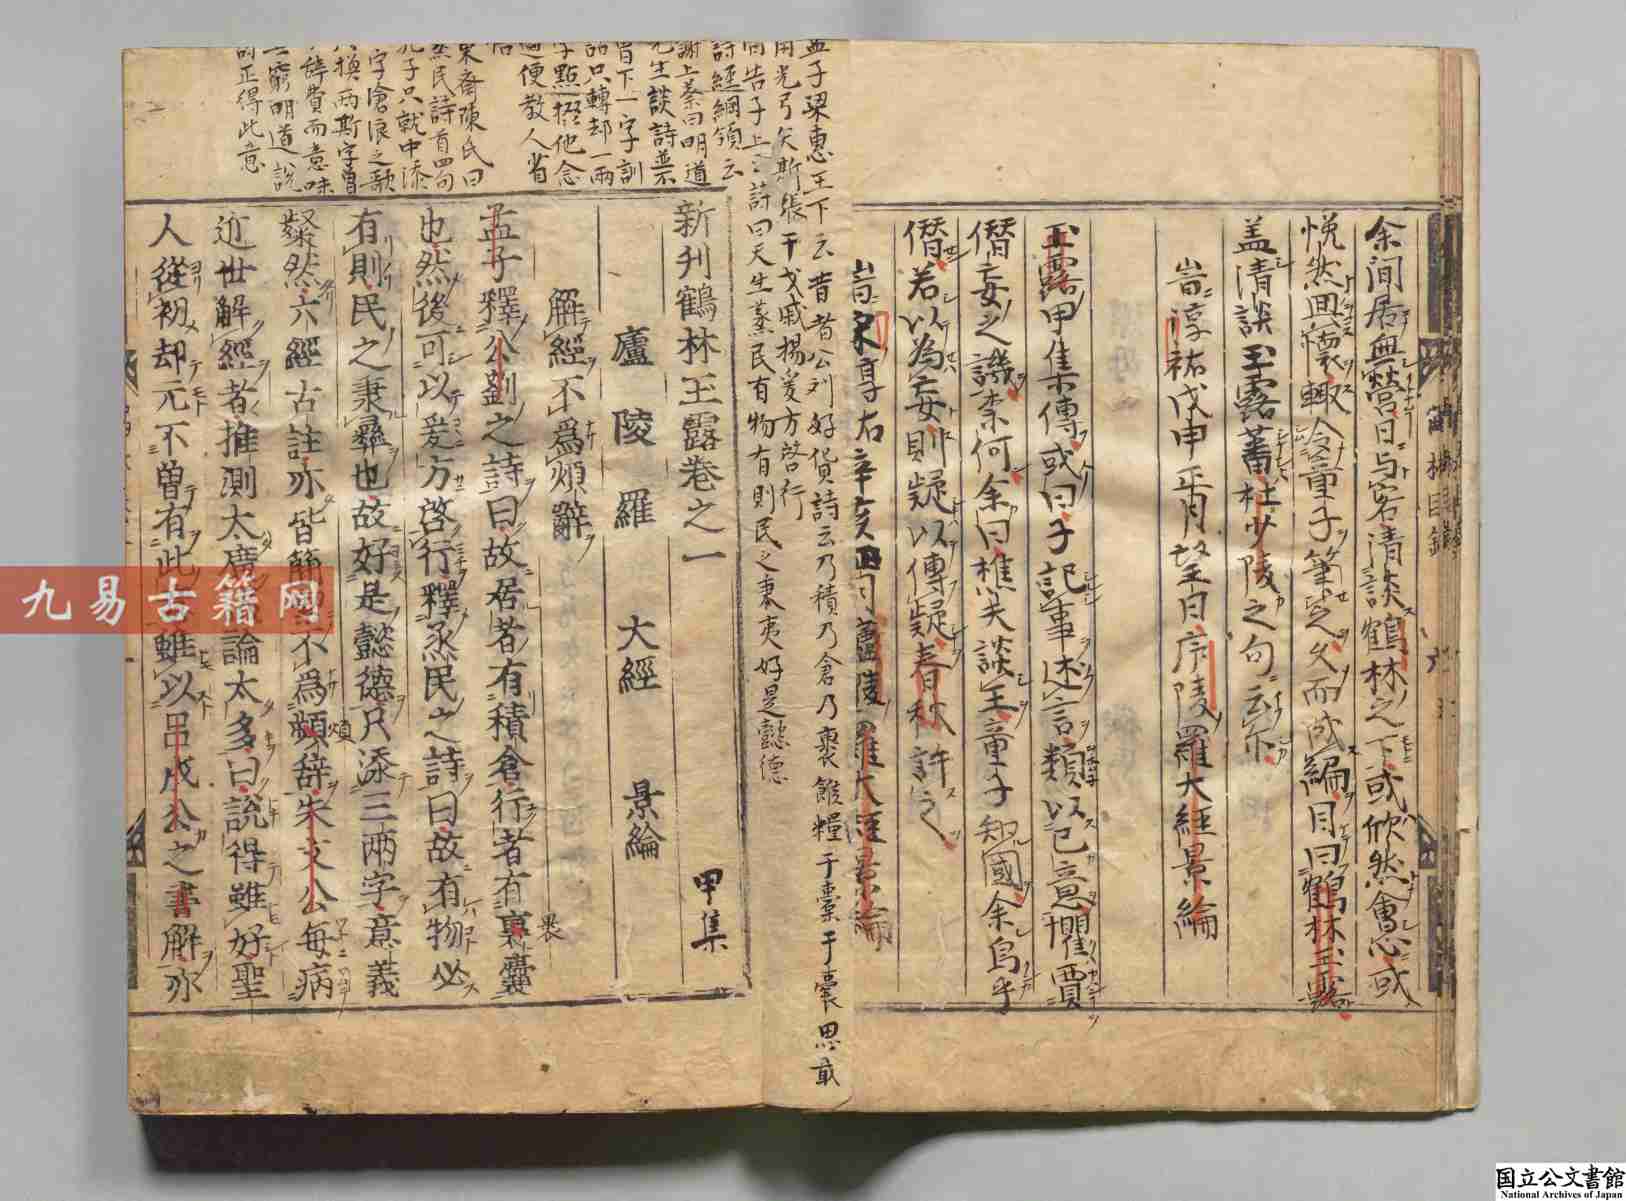 余间居無營日与客清談鶴林之下或欣然會心或
慨然興懷輒令童子筆之久而成編因曰鶴林玉露
盖清談玉露蕃杜少陵之句云尔
峕淳祐戊申正月望日序陵羅大經景綸
玉露甲集傳或曰子記事述言類以己意懼賈
僭妄之譏柰何余曰樵夫談王童子知國余烏乎
僭若以為妄則疑以傳疑春秋許之
峕宋享右辛亥四月廬陵羅大經景綸
孟子梁惠王下云昔者公刘好货詩云乃積乃倉乃裹餱糧于橐于囊思戢
用光弓矢斯張干戈戚揚爰方啓行
同告子上之詩曰天生蒸民有物有則民之秉夷好是懿德
詩經綱領云
謝上蔡曰明道
先生談詩並不
曾下一字訓
詁只轉却一兩
字點掇他念
過便教人省
悟
東斎陳氏曰
蒸民詩首四句
孔子只就中添
字滄浪之歌
換兩斯字曾
辞費而意味
無窮明道説
詩正得此意
新刋鶴林玉露巻之一
甲集
廬陵 羅 大經 景綸
解經不爲煩辭
孟子釋公劉之詩曰故居者有積倉行者有裹囊
也然後可以爰方啓行釋烝民之詩曰故有物必
有則民之秉彝也故好是懿德只添三兩字意義
粲然六經古註亦皆簡不爲煩辞朱文公每病
近世解經者推測太廣論太多曰説得雖好聖
人從初却元不曾有此雖以呂成公之書解亦
九易古籍网
国立公文書館
National Archives of Japan